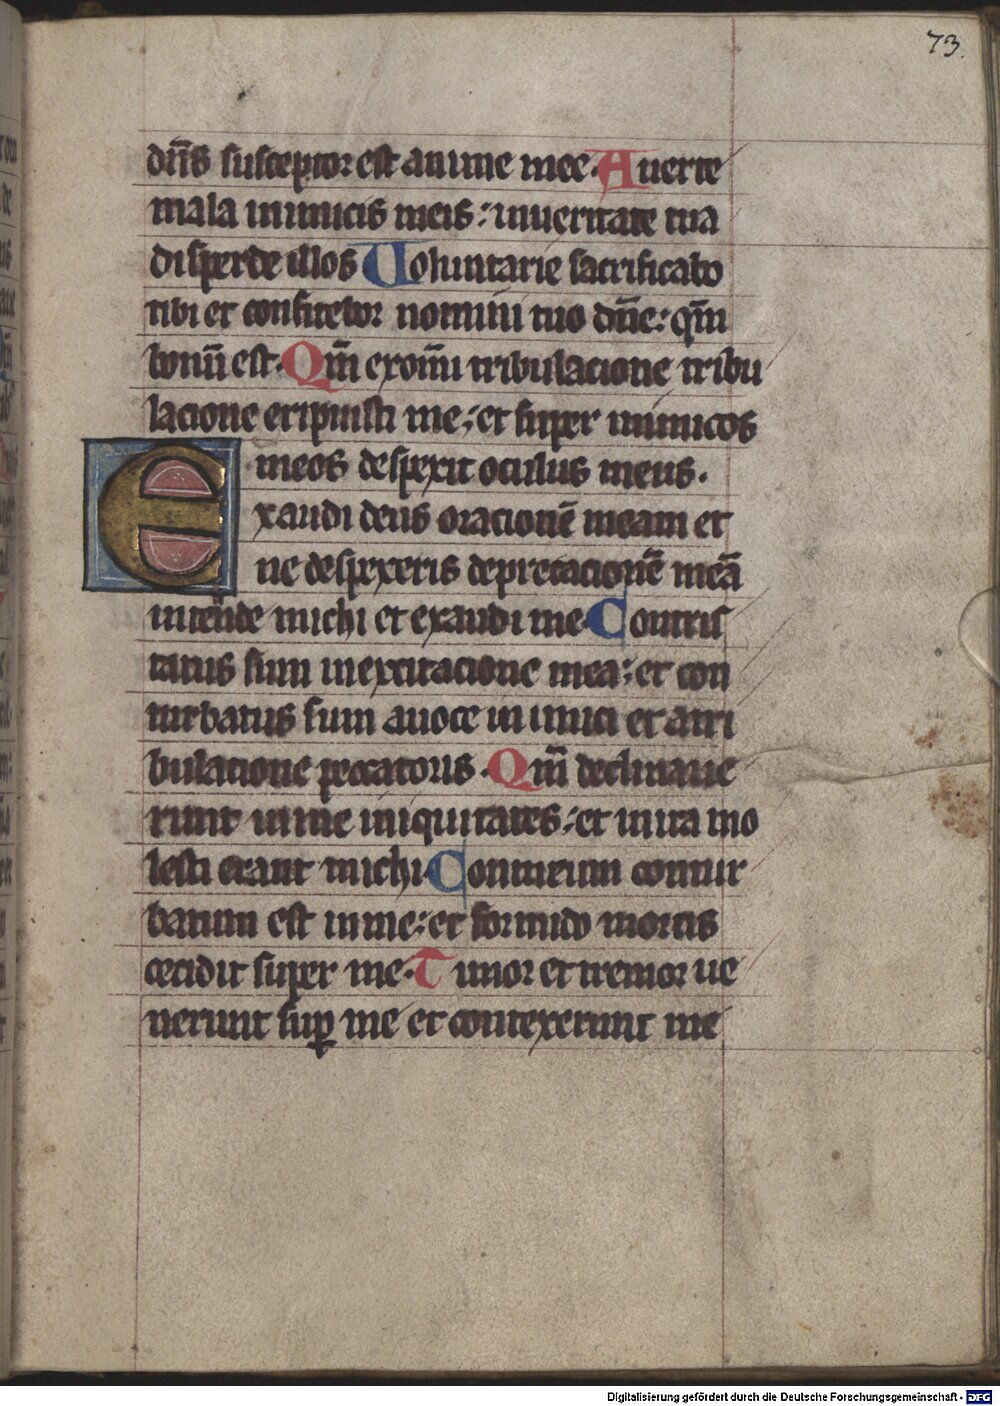 73.
dn̄s susceptor est anime mee. Auerte
mala inimicis meis: inueritate tua
disperde illos Uoluntarie sacrificabo
tibi et confitebor nomini tuo dn̄e: qm̄
bonū est. Qm̄ exom̄i tribulacione tribu
lacione eripuisti me: et super inimicos
meos despexit oculus meus.
Exaudi deus oracionē meam et
ne despexeris deprecacionē meā
intende michi et exaudi me Contris
tatus sum inexcitacione mea: et con
turbatus sum auoce inimici et atri
bulacione peccatoris. Qm̄ declinaue
runt inme iniquitates: et inira mo
lesti erant michi Cormeum contur
batum est inme: et formido mortis
cecidit super me. Timor et tremor ue
nerunt sup me et contexerunt me
Digitalisierung gefördert durch die Deutsche Forschungsgemeinschaft - DFG